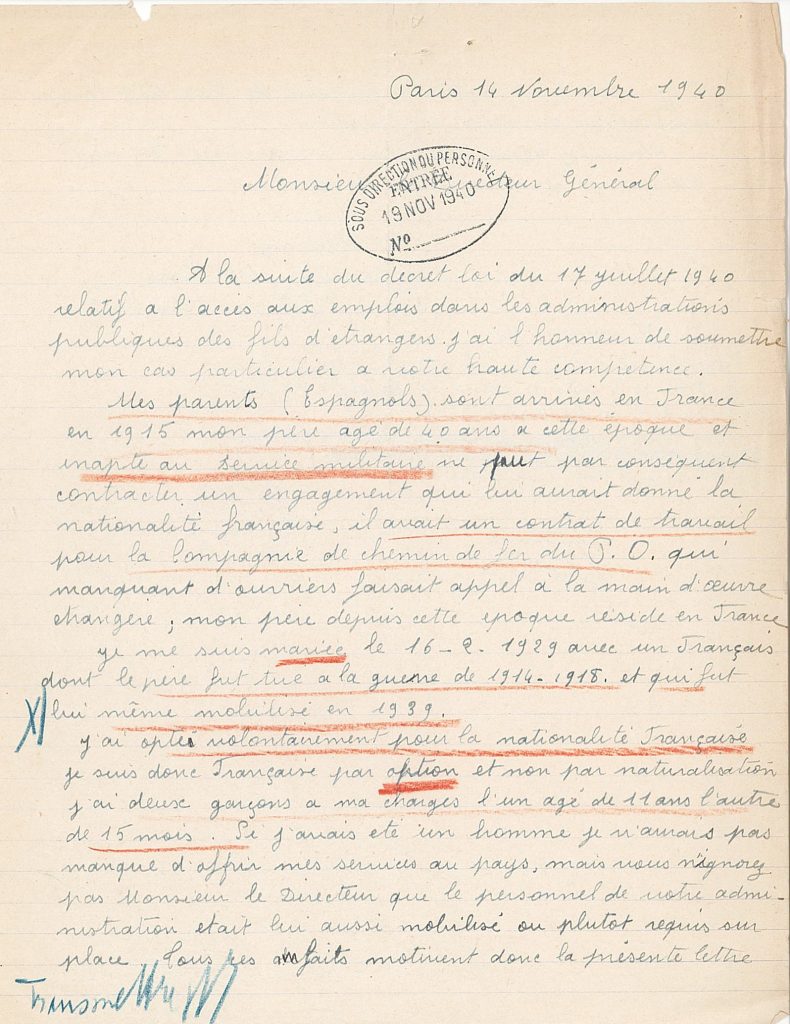 Paris 14 Novembre 1940
SOUS DIRECTION DU PERSONNEL
ENTRÉE
19 NOV 1940
Nº
Monsieur Directeur Général
A la suite du décret loi du 17 juillet 1940
relatif a l'accès aux emplois dans les administrations
publiques des fils d'etrangers. j'ai l'honneur de soumettre
mon cas particulier a votre haute compétence.
Mes parents (Espagnols). sont arrivés en France
en 1915 mon père agé de 40 ans a cette époque et
inapte au service militaire ne put par conséquent
contracter un engagement qui lui aurait donné la
nationalité française, il avait un contrat de travail
pour la Compagnie de chemin de fer du P.O. qui
manquant d'ouvriers faisait appel à la main d'œuvre
etrangère ; mon père depuis cette époque réside en France
je me suis mariée le 16-2.1929 avec un Français
dont le père fut tué a la guerre de 1914-1918. et qui fut
lui même mobilisé en 1939.
j'ai opté volontairement pour la nationalité Française
je suis donc Française par option et non par naturalisation
j'ai deux garçons a ma charges l'un agé de 11 ans l'autre
de 15 mois. Si j'avais eté un homme je n'aurais pas
manqué d'offrir mes services au pays, mais vous n'ignorez
pas Monsieur le Directeur que le personnel de votre admi-
nistration etait lui aussi mobilisé ou plutot requis sur
place. Tous ces faits motivent donc la présente lettre